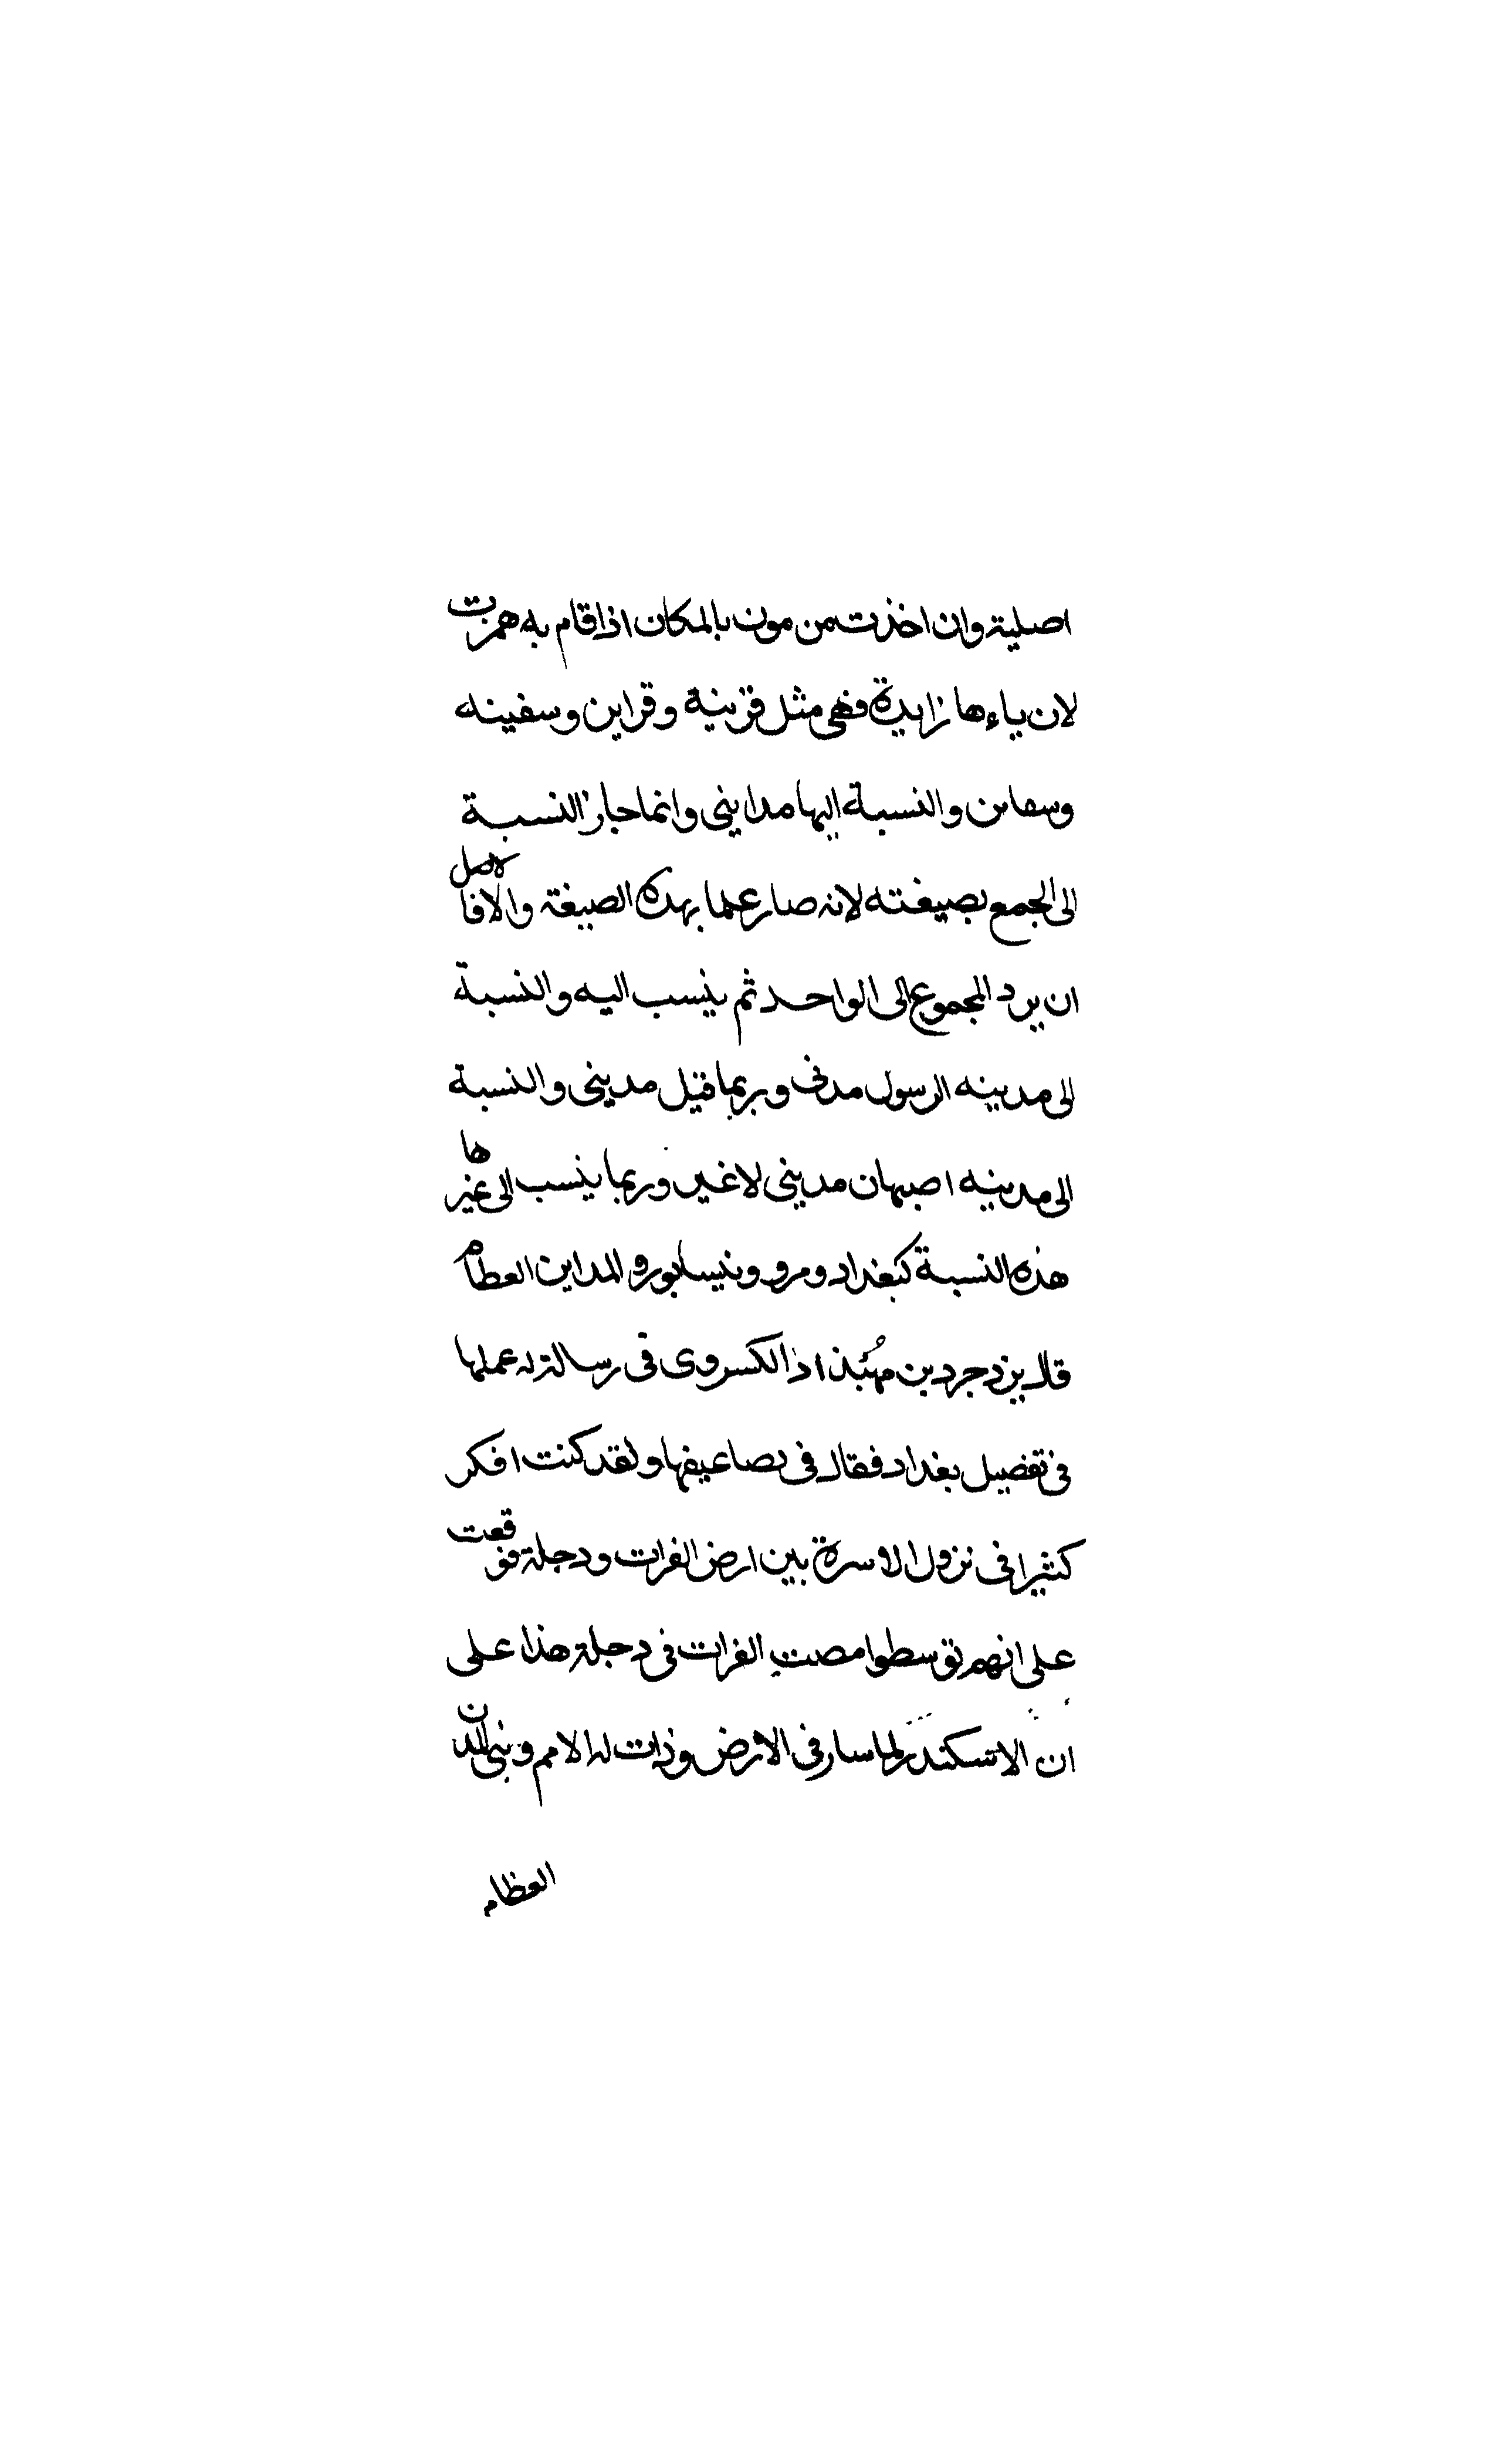 اصلية وان اخذت من مون بالمكان اذا اقام به همزت
لان ياءها زايدة فهى مثل قرينة وقراين وسفينه
وسفاىن والنسبة اليها مداينى وانما جاز النسبة
الى الجمع بصيغته لانه صار علما بهذه الصيغة والا فالاصل
ان يرد المجموع الى الواحد ثم ينسب اليه والنسبة
الى مدينه الرسول مدنى وربما قيل مدينى والنسبة
الى مدينه اصبهان مدينى لا غير وربما ينسب الى غيرها
هذه النسبة كبغداد ومرو ونيسابور والمداين العطام
قال يزدجرد بن مهبنداذ الكسروى فى رسالة له عملها
فى تفضيل بغداد فقال فى تضاعيفها ولقد كنت افكر
كثيرا فى نزول الاسرة بين ارض الفرات ودجلة فوقعت
على انهم توسطوا مصب الفرات فى دجلة هذا على
ان الاسكندر لما سار فى الارض ودانت له الامم وبنى المدن
العظام